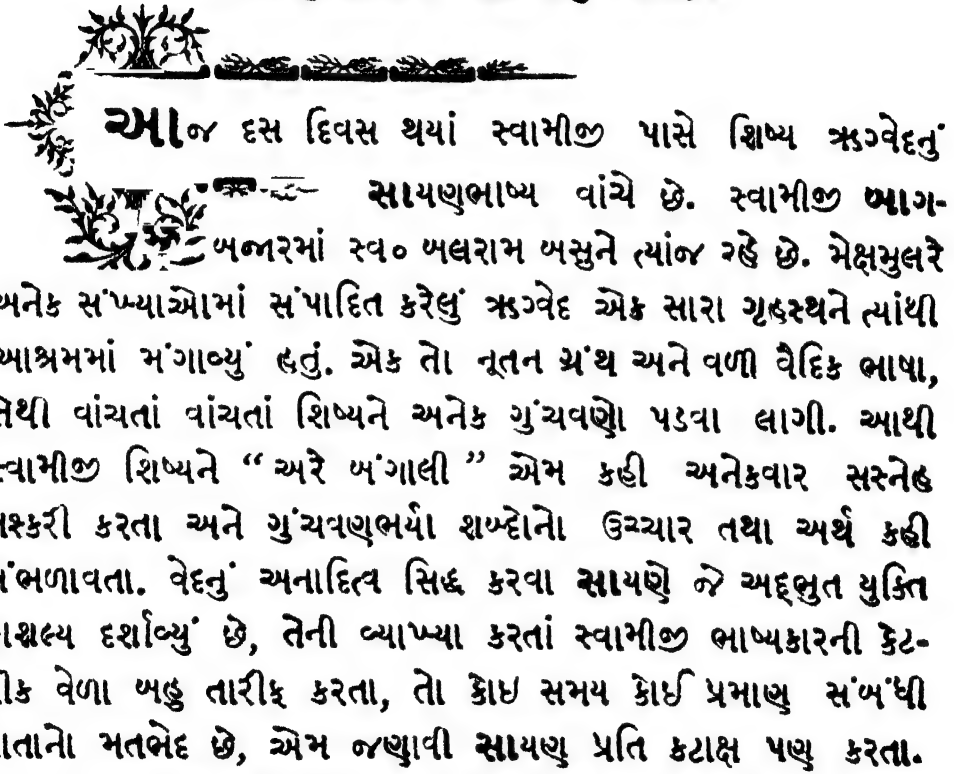 આજ દસ દિવસ થયાં સ્વામીજી પાસે શિષ્ય ઋગ્વેદનું
સાયણભાષ્ય વાંચે છે. સ્વામીજી બાગ-
બજારમાં સ્વ૦ બલરામ બસુને ત્યાંજ રહે છે. મેક્ષમુલરે
અનેક સંખ્યાઓમાં સંપાદિત કરેલું ઋગ્વેદ એક સારા ગૃહસ્થને ત્યાંથી
આશ્રમમાં મંગાવ્યું હતું. એક તો નૂતન ગ્રંથ અને વળી વૈદિક ભાષા,
તેથી વાંચતાં વાંચતાં શિષ્યને અનેક ગુંચવણો પડવા લાગી. આથી
સ્વામીજી શિષ્યને “અરે બંગાલી” એમ કહી અનેકવાર સસ્નેહ
મશ્કરી કરતા અને ગુંચવણભર્યા શબ્દોનો ઉચ્ચાર તથા અર્થ કહી
સંભળાવતા. વેદનું અનાદિત્વ સિદ્ધ કરવા સાયણે જે અદ્ભુત યુક્તિ
દર્શાવ્યું છે, તેની વ્યાખ્યા કરતાં સ્વામીજી ભાષ્યકારની કેટ-
લીક વેળા બહુ તારીફ કરતા, તો કોઇ સમય કોઈ પ્રમાણ સંબંધી
પોતાનો મતભેદ છે, એમ જણાવી સાયણ પ્રતિ કટાક્ષ પણ કરતા.